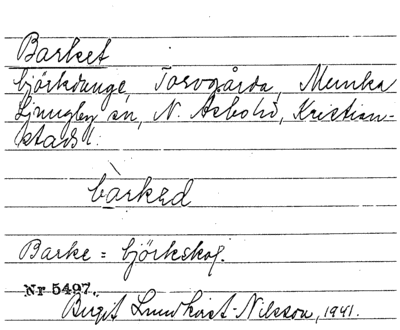 Barket
björkdunge, Torvgårda, Munka
Ljungby sn, N. Åsbohd, Kristian-
stads l.
bàrkəd
Barke = björkskog.
Nr 5497.
Birgit Lundkvist-Nilsson, 1941.